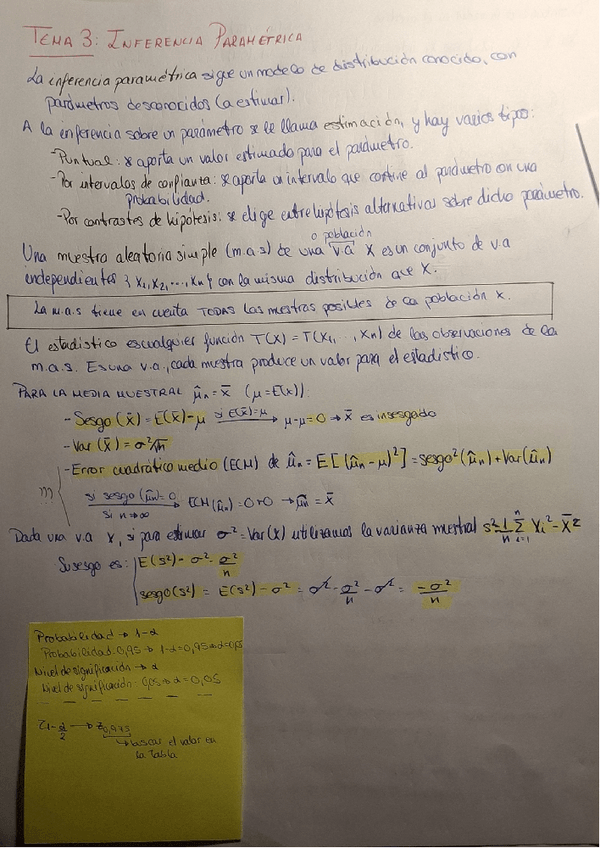 TEMA 3: INFERENCIA PARAMÉTRICA
La inferencia paramétrica sigue un modelo de distribución conocido, con
parámetros desconocidos (a estimar).
A la inferencia sobre un parámetro se le llama estimación, y hay varios tipos:
-Puntual: se aporta un valor estimado para el parámetro.
-Por intervalos de confianza: se aporta un intervalo que contiene al parámetro con una
probabilidad.
-Por contrastes de hipótesis: se elige entre hipótesis alternativas sobre dicho parámetro.
o población
Una muestra aleatoria simple (m.a.s) de una v.a X es un conjunto de v.a
independientes {X1, X2, ..., Xn} con la misma distribución que X.
La m.a.s tiene en cuenta TODAS las muestras posibles de la población X.
El estadístico es cualquier función T(X) = T(X1, ..., Xn) de las observaciones de la
m.a.s. Es una v.a., cada muestra produce un valor para el estadístico.
PARA LA MEDIA MUESTRAL μ̂n = x̄ (μ=E(x))
-Sesgo (x̄) = E(x̄)-μ si E(x̄)=μ → μ-μ=0 → x̄ es insesgado
-Var (x̄) = σ²/n
-Error cuadrático medio (ECM) de μ̂n = E[(μ̂n-μ)²] = sesgo²(μ̂n) + Var(μ̂n)
si sesgo (μ̂n)=0
si n→∞
ECM(μ̂n) = 0+0 → μ̂n = x̄
Dada una v.a X, si para estimar σ² = Var(X) utilizamos la varianza muestral s² = 1/n Σ Xi² - X̄²
Su sesgo es: E(s²) = σ² - σ²/n
sesgo(s²) = E(s²) - σ² = σ² - σ²/n - σ² = -σ²/n
Probabilidad → 1-α
Probabilidad 0,95 → 1-α=0,95 → α=0,05
Nivel de significación → α
Nivel de significación 0,05 → α=0,05
Z1-α/2 → Z0,975
→ buscar el valor en
la tabla